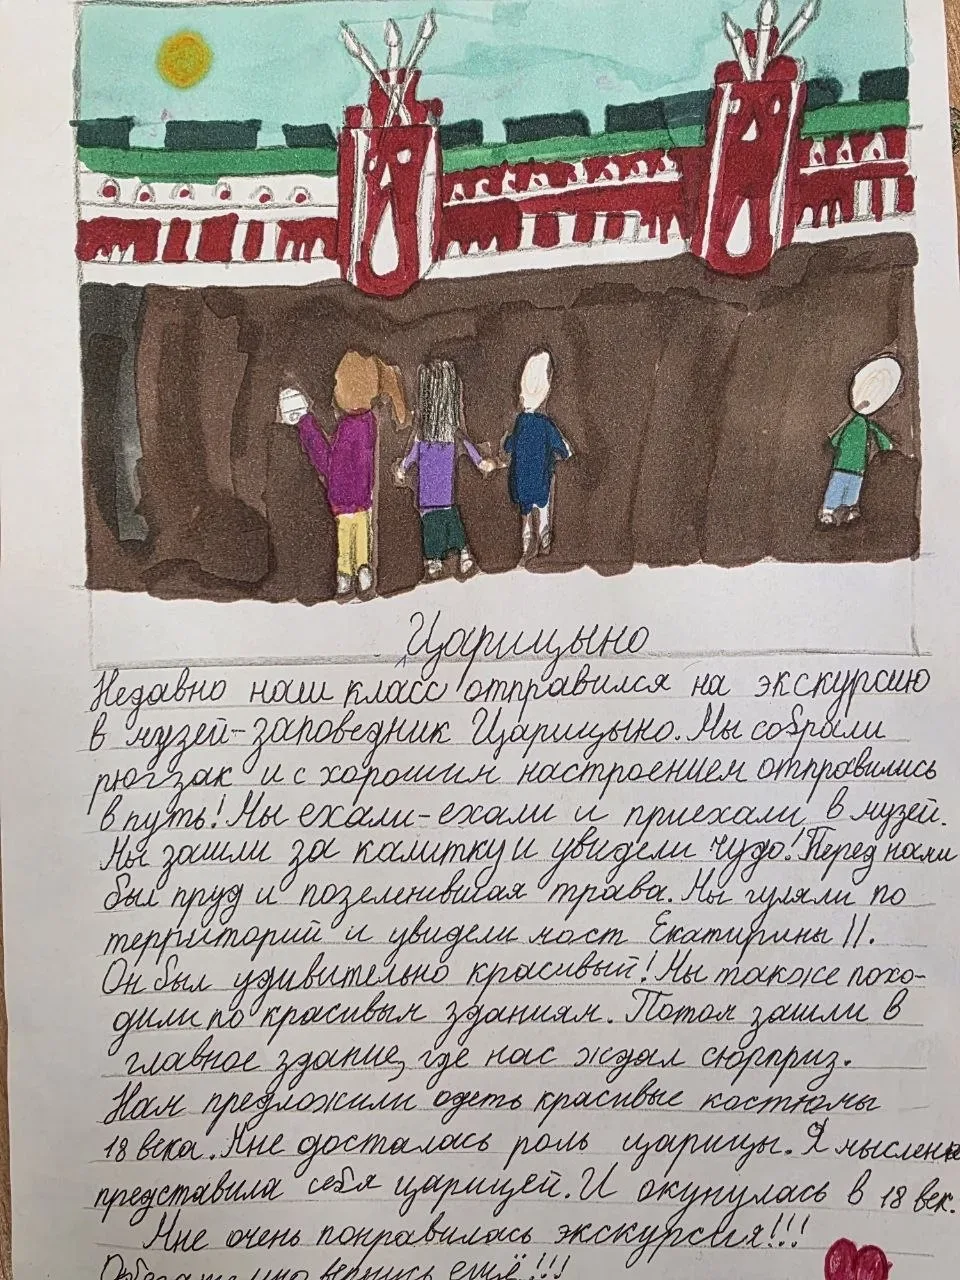 Царицыно
Недавно наш класс отправился на экскурсию
в музей-заповедник Царицыно. Мы собрали
рюгзак и с хорошим настроением отправились
в путь! Мы ехали-ехали и приехали в музей.
Мы зашли за калитку и увидели чудо! Перед нами
был пруд и позеленившая трава. Мы гуляли по
территорий и увидели мост Екатирины II.
Он был удивительно красивый! Мы также похо-
дили по красивым зданиям. Потом зашли в
главное здание, где нас ждал сюрприз.
Нам предложили одеть красивые костюмы
18 века. Мне досталась роль царицы. Я мысленно
представила себя царицей. И окунулась в 18 век.
Мне очень понравилась экскурсия!!!
вернусь ещё!!!